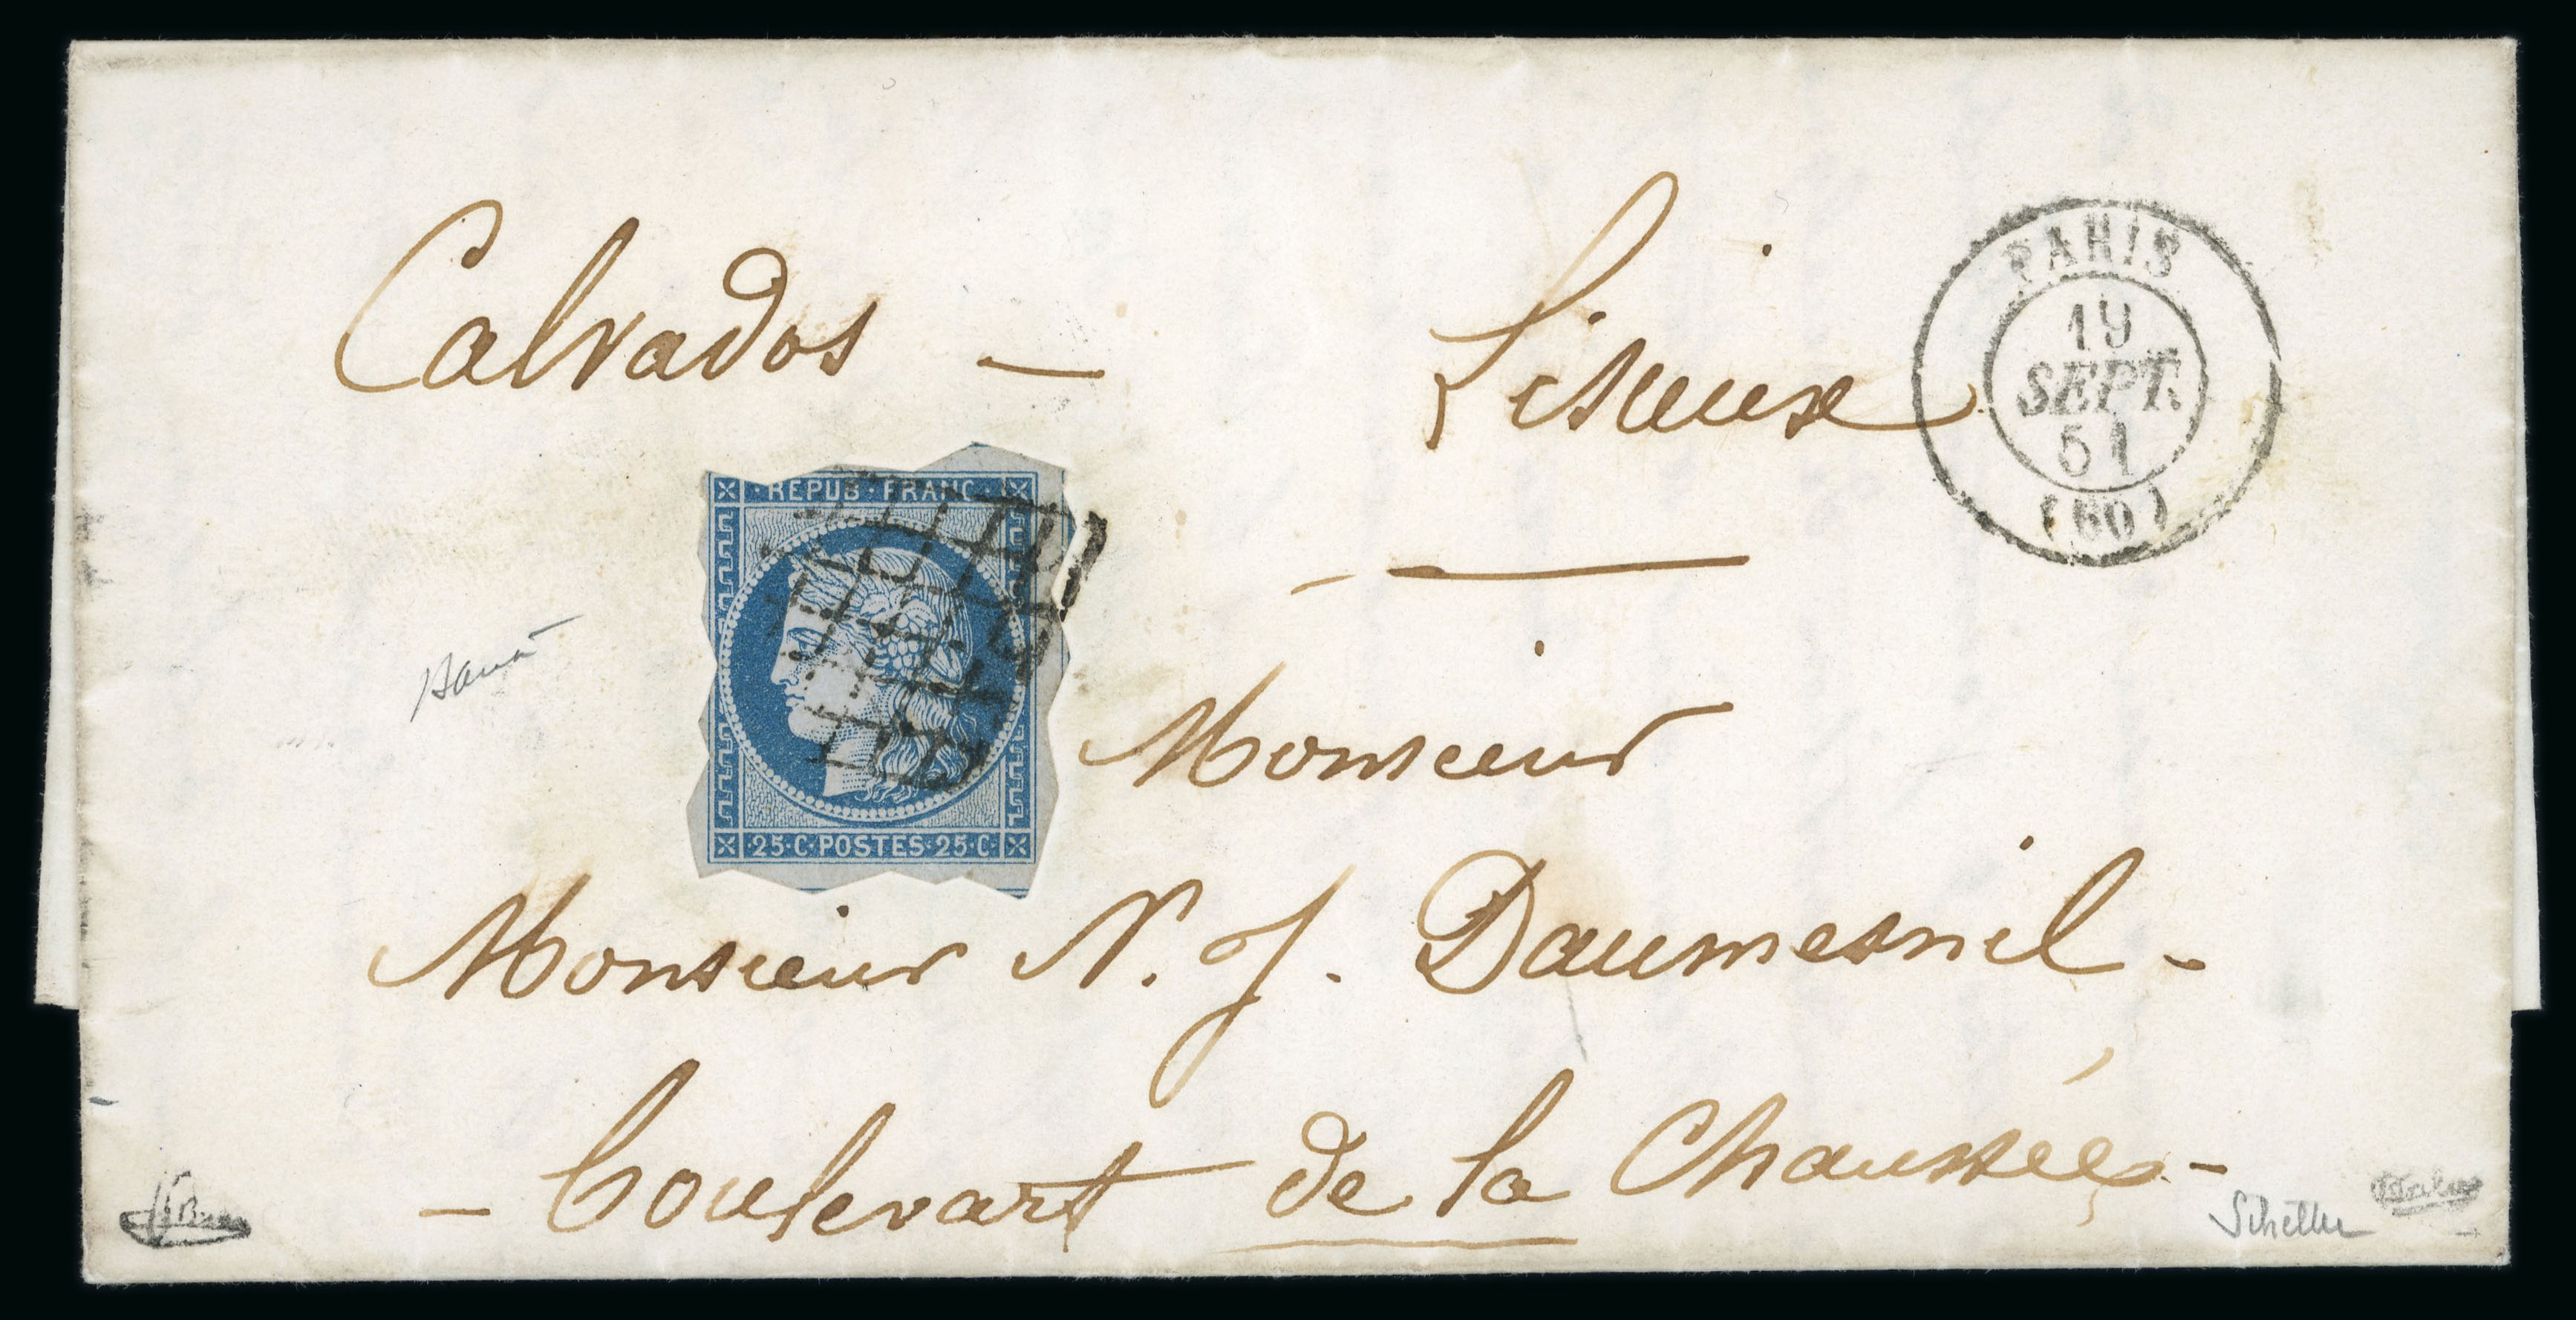 Calvados — Lisieux
PARIS
19
SEPT.
51
(60)
REPUB · FRANC ·
25 · C · POSTES · 25 · C ·
Monsieur
Monsieur N. J. Daumesnil -
- boulevart de la Chaussée -